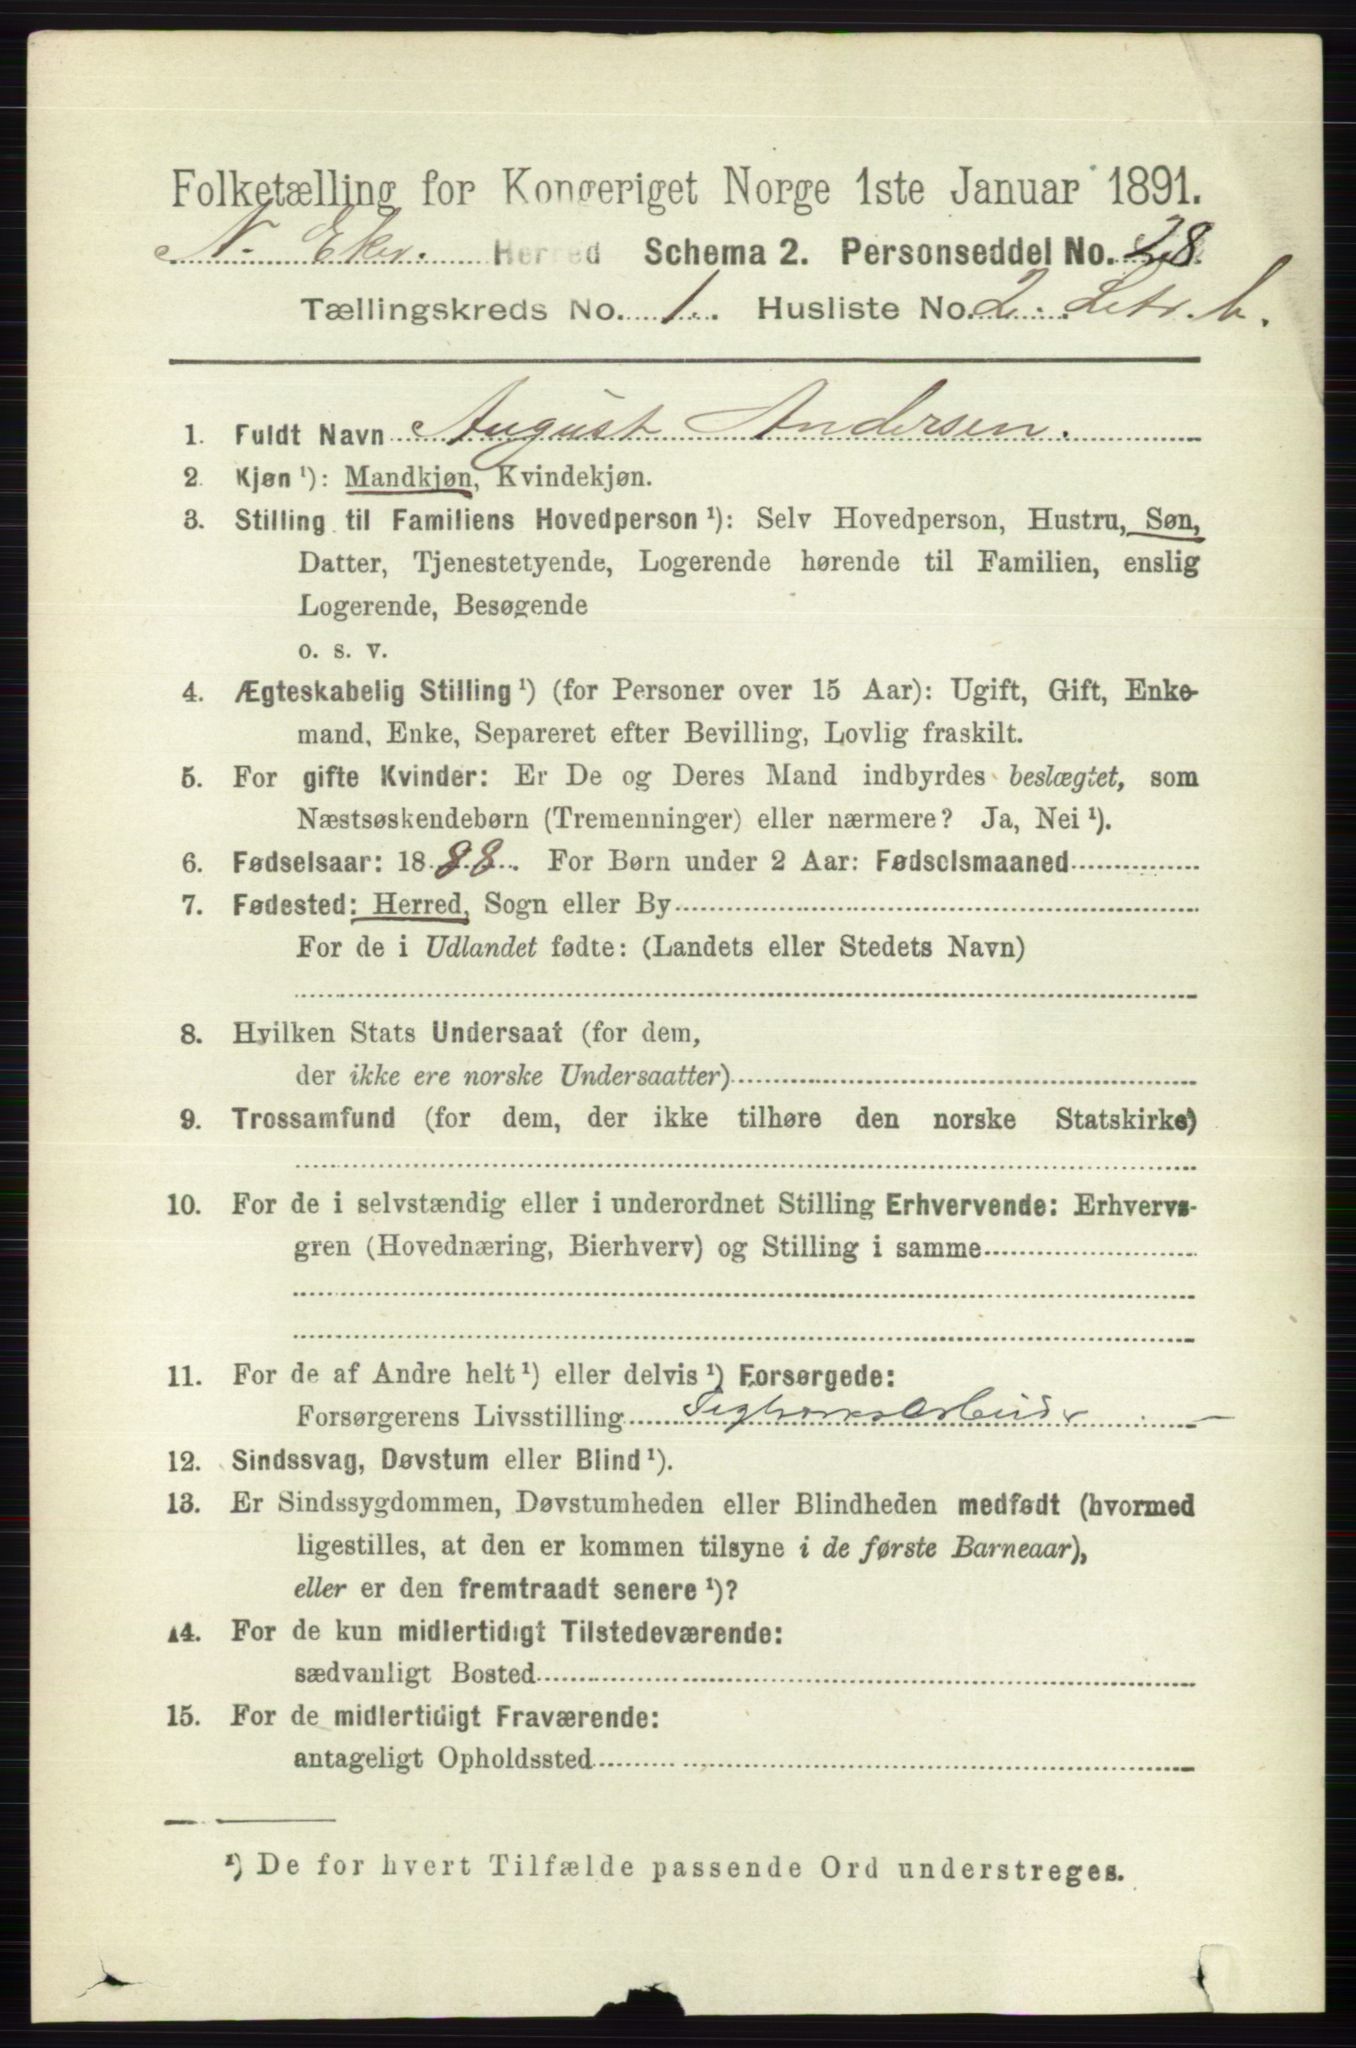 Folketælling for Kongeriget Norge 1ste Januar 1891.
N. Eker. Herred Schema 2. Personseddel No. 28
Tællingskreds No. 1. Husliste No. 2. Litr. b.
1. Fuldt Navn August Andersen.
2. Kjøn ¹): Mandkjøn, Kvindekjøn.
3. Stilling til Familiens Hovedperson ¹): Selv Hovedperson, Hustru, Søn,
Datter, Tjenestetyende, Logerende hørende til Familien, enslig
Logerende, Besøgende
o. s. v.
4. Ægteskabelig Stilling ¹) (for Personer over 15 Aar): Ugift, Gift, Enke-
mand, Enke, Separeret efter Bevilling, Lovlig fraskilt.
5. For gifte Kvinder: Er De og Deres Mand indbyrdes beslægtet, som
Næstsøskendebørn (Tremenninger) eller nærmere? Ja, Nei ¹).
6. Fødselsaar: 1888. For Børn under 2 Aar: Fødselsmaaned
7. Fødested: Herred, Sogn eller By
For de i Udlandet fødte: (Landets eller Stedets Navn)
8. Hvilken Stats Undersaat (for dem,
der ikke ere norske Undersaatter)
9. Trossamfund (for dem, der ikke tilhøre den norske Statskirke)
10. For de i selvstændig eller i underordnet Stilling Erhvervende: Erhvervs-
gren (Hovednæring, Bierhverv) og Stilling i samme
11. For de af Andre helt ¹) eller delvis ¹) Forsørgede:
Forsørgerens Livsstilling
12. Sindssvag, Døvstum eller Blind ¹).
13. Er Sindssygdommen, Døvstumheden eller Blindheden medfødt (hvormed
ligestilles, at den er kommen tilsyne i de første Barneaar),
eller er den fremtraadt senere ¹)?
14. For de kun midlertidigt Tilstedeværende:
sædvanligt Bosted
15. For de midlertidigt Fraværende:
antageligt Opholdssted
¹) De for hvert Tilfælde passende Ord understreges.